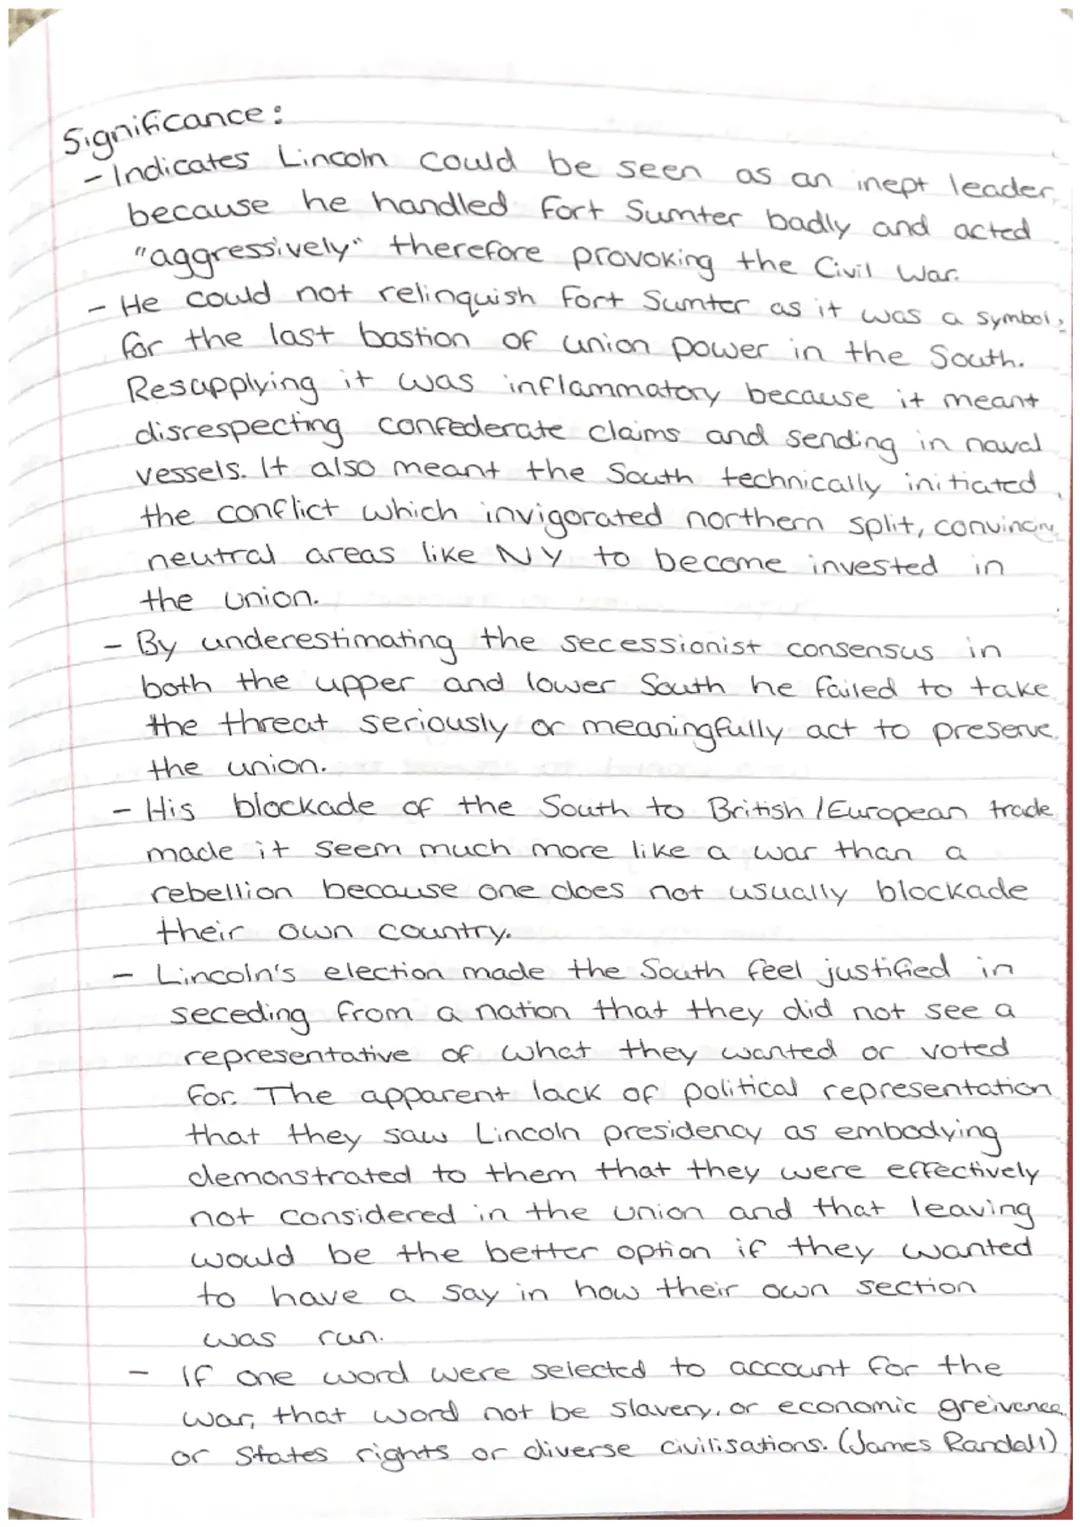 Significance:
- Indicates Lincoln could be seen as an inept leader,
because he handled Fort Sumter badly and acted
"aggressively" therefore provoking the Civil War.
- He could not relinquish Fort Sumter as it was a symbol,
for the last bastion of union power in the South.
Resupplying it was inflammatory because it meant
disrespecting confederate claims and sending in naval
vessels. It also meant the South technically initiated
the conflict which invigorated northern split, convincing
neutral areas like NY to become invested in
the union.
- By underestimating the secessionist consensus in
both the upper and lower South he failed to take
the threat seriously or meaningfully act to preserve
the union.
- His blockade of the South to British/European trade
made it seem much more like a war than a
rebellion because one does not usually blockade
their own country.
- Lincoln's election made the South feel justified in
seceding from a nation that they did not see a
representative of what they wanted or voted
for. The apparent lack of political representation
that they saw Lincoln presidency as embodying
demonstrated to them that they were effectively
not considered in the union and that leaving
would be the better option if they wanted
to have a say in how their own section
was run.
- If one word were selected to account for the
war, that word not be slavery, or economic greivance
or States rights or diverse civilisations. (James Randall)